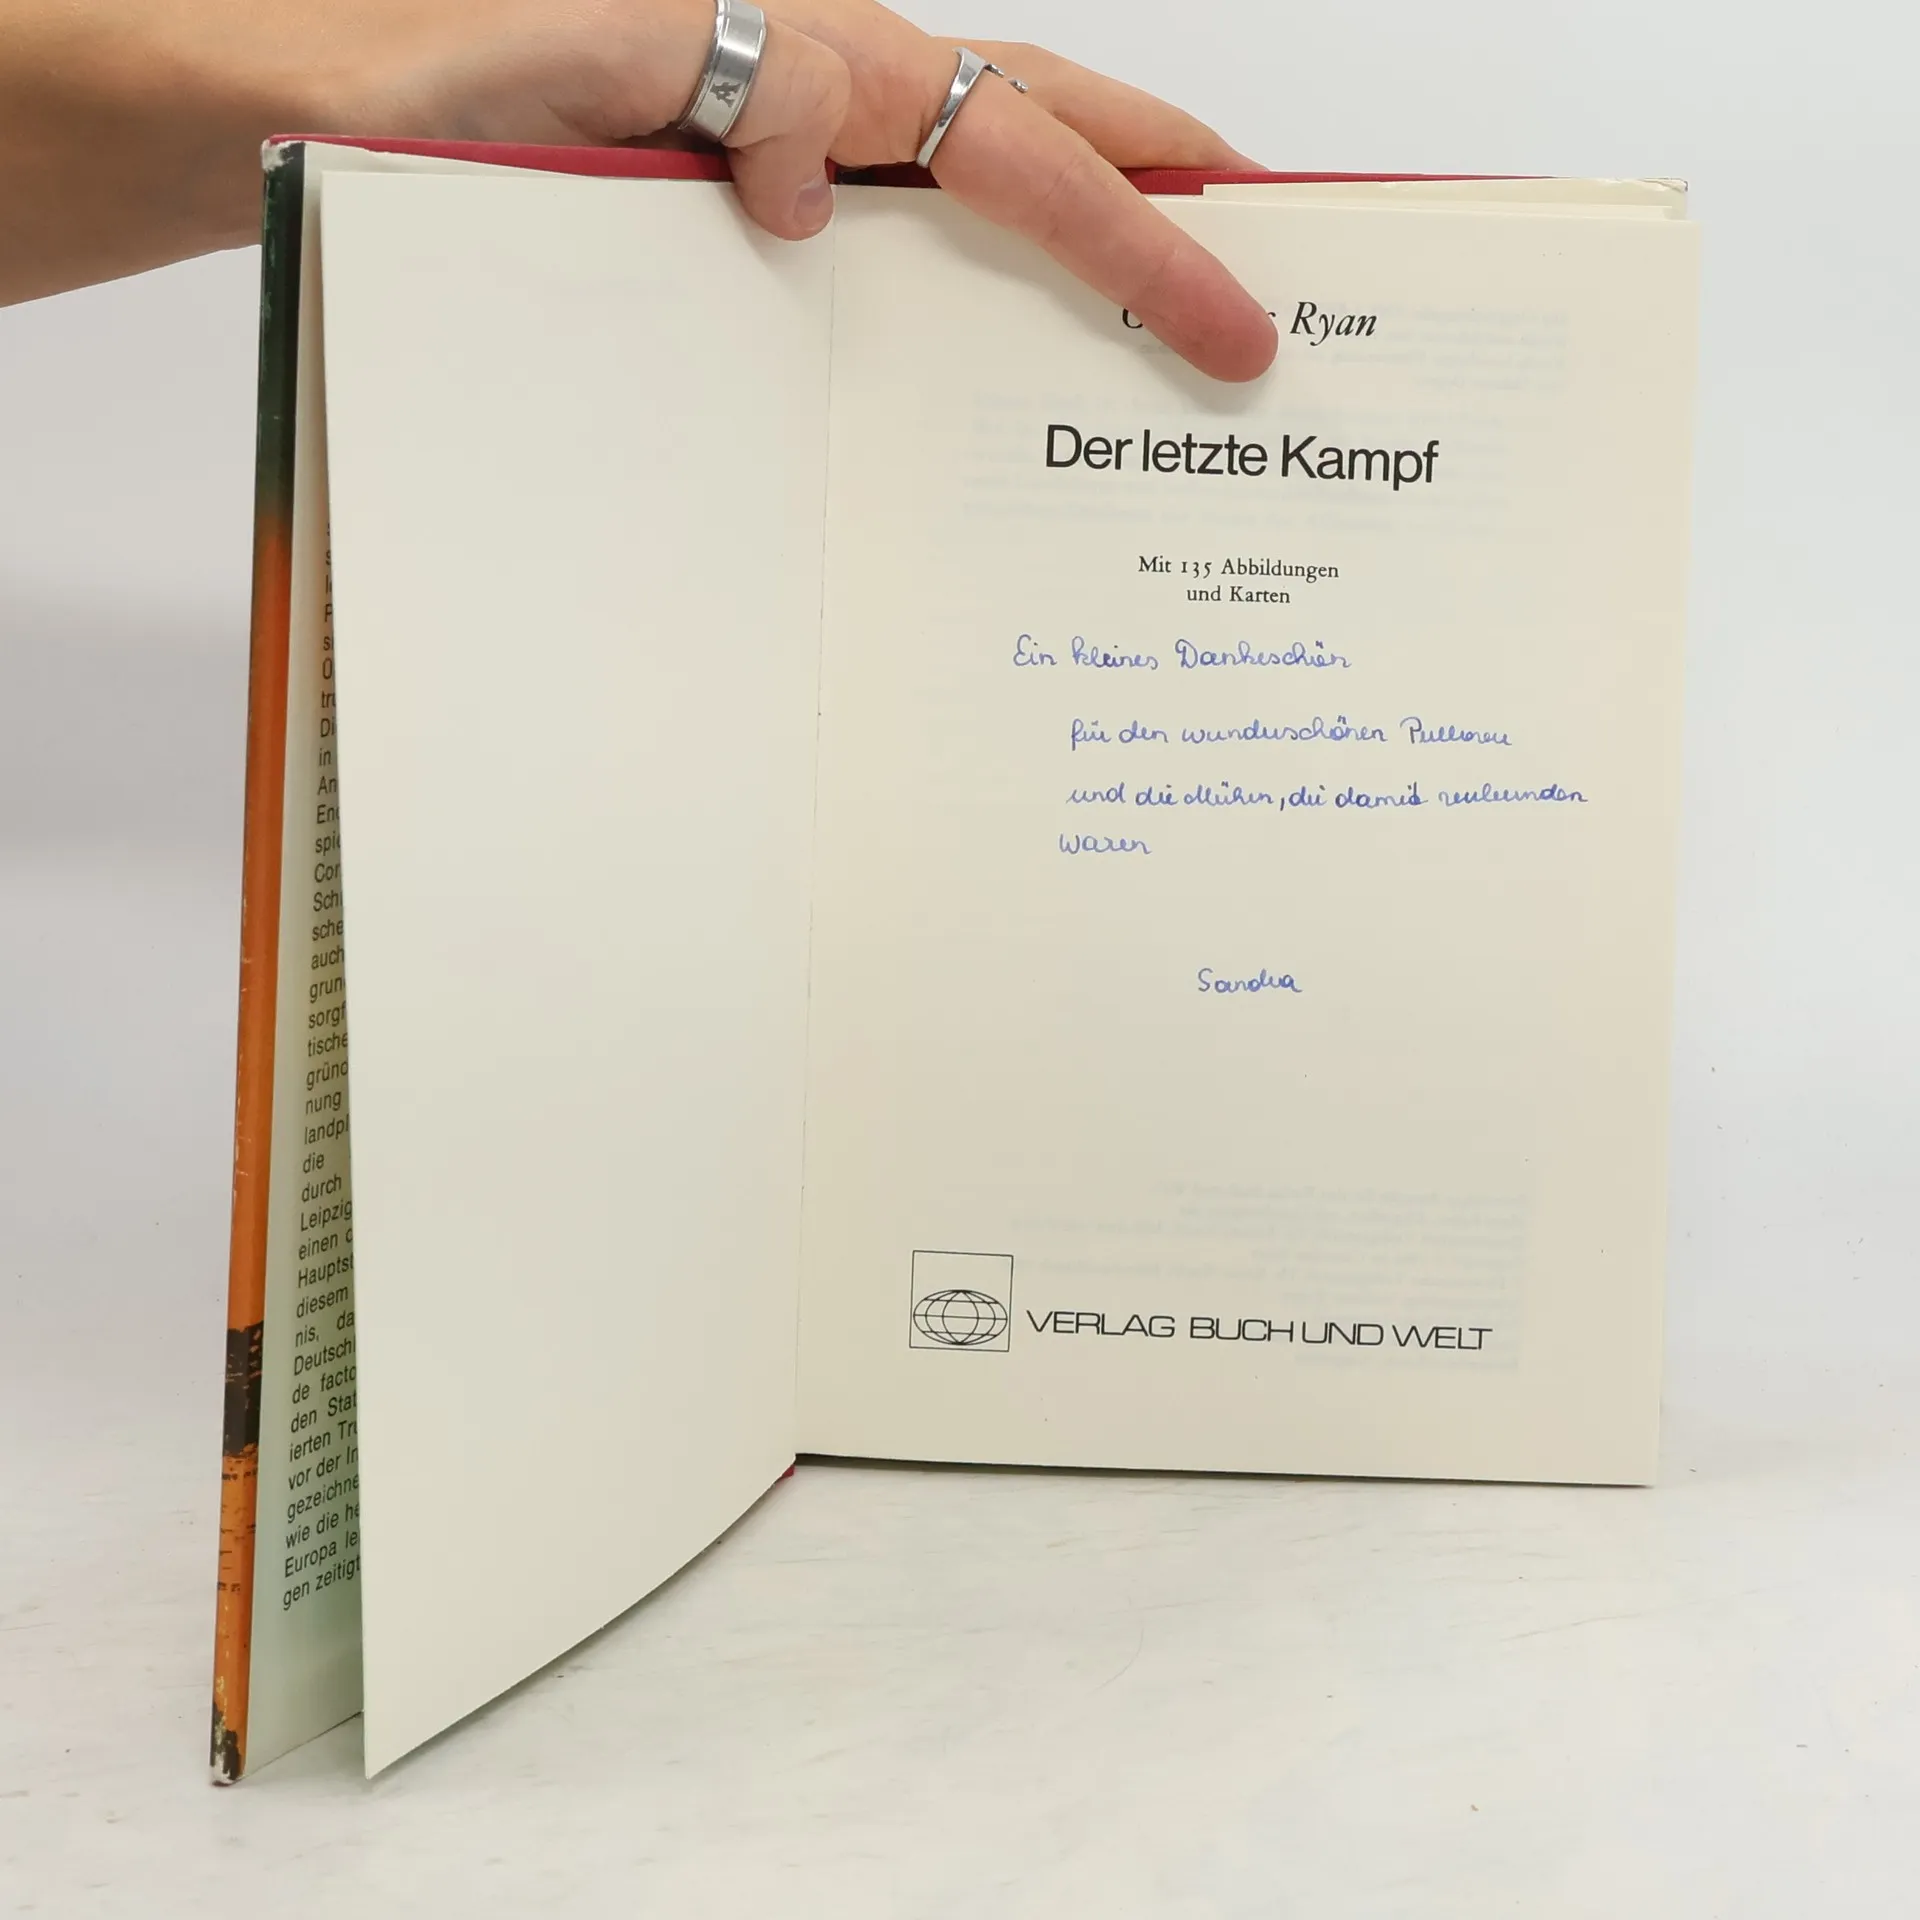 s
s
l
F
s
Ü
tru
Di
in
An
End
spie
Cor
Sch
sche
auch
grun
sorgf
tische
gründ
nung
landpl
die
durch
Leipzig
einen
Hauptst
diesem
nis, da
Deutschl
de facto
den Stat
ierten Tru
vor der In
gezeichne
wie die he
Europa le
gen zeitigt
Ryan
Der letzte Kampf
Mit 135 Abbildungen
und Karten
Ein kleines Dankeschön
für den wunderschönen Pullover
und die Mühen, die damit verbunden
waren
Sandra
VERLAG BUCH UND WELT